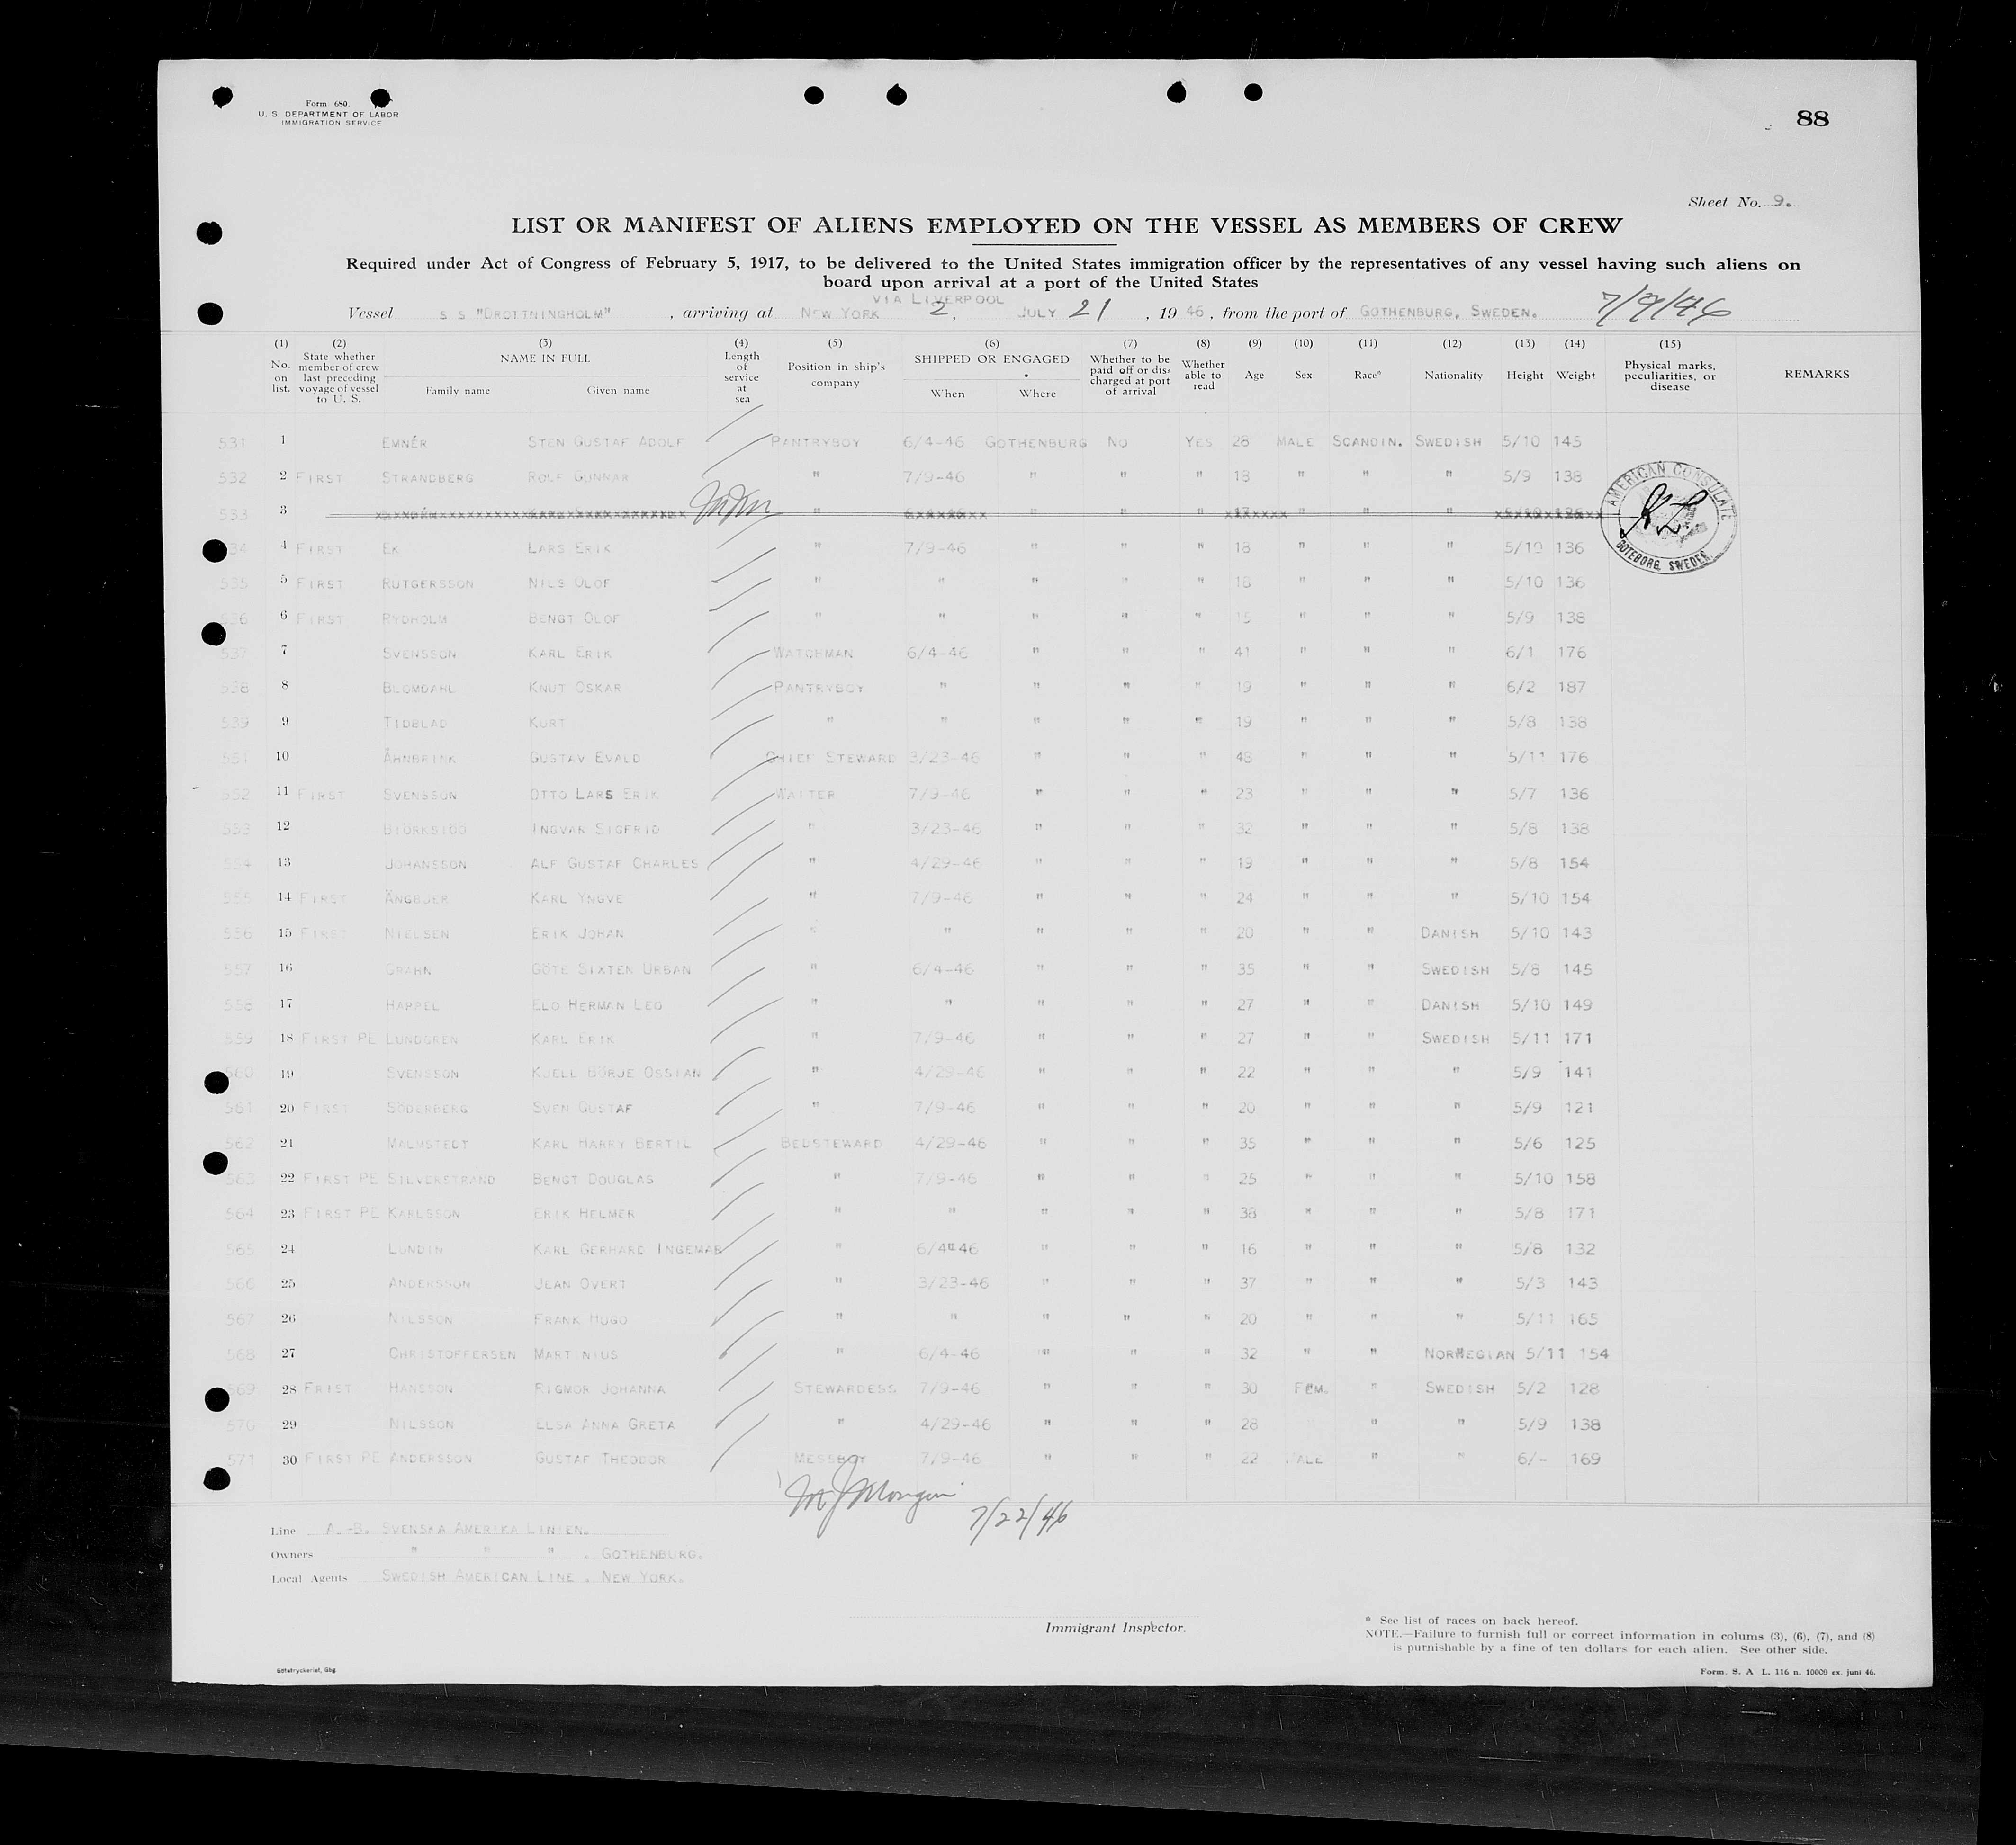 Form 680.
U. S. DEPARTMENT OF LABOR
IMMIGRATION SERVICE
88
Sheet No. 9.
LIST OR MANIFEST OF ALIENS EMPLOYED ON THE VESSEL AS MEMBERS OF CREW
Required under Act of Congress of February 5, 1917, to be delivered to the United States immigration officer by the representatives of any vessel having such aliens on
board upon arrival at a port of the United States
VIA LIVERPOOL
Vessel S S "DROTTNINGHOLM" , arriving at NEW YORK 2. JULY 21 , 19 46 , from the port of GOTHENBURG, SWEDEN. 7/9/46
(1) No. on list. (2) State whether member of crew last preceding voyage of vessel to U. S. (3) NAME IN FULL Family name Given name (4) Length of service at sea (5) Position in ship's company (6) SHIPPED OR ENGAGED When Where (7) Whether to be paid off or discharged at port of arrival (8) Whether able to read (9) Age (10) Sex (11) Race* (12) Nationality (13) Height (14) Weight (15) Physical marks, peculiarities, or disease REMARKS
531 1 EMNÉR STEN GUSTAF ADOLF PANTRYBOY 6/4-46 GOTHENBURG NO YES 28 MALE SCANDIN. SWEDISH 5/10 145
532 2 FIRST STRANDBERG ROLF GUNNAR " 7/9-46 " " " 18 " " " 5/9 138
533 3 " " " " " " "
AMERICAN CONSULATE
GOTEBORG, SWEDEN
534 4 FIRST EK LARS ERIK " 7/9-46 " " " 18 " " " 5/10 136
535 5 FIRST RUTGERSSON NILS OLOF " " " " " 18 " " " 5/10 136
536 6 FIRST RYDHOLM BENGT OLOF " " " " " 15 " " " 5/9 138
537 7 SVENSSON KARL ERIK WATCHMAN 6/4-46 " " " 41 " " " 6/1 176
538 8 BLOMDAHL KNUT OSKAR PANTRYBOY " " " " 19 " " " 6/2 187
539 9 TIDBLAD KURT " " " " " 19 " " " 5/8 138
551 10 ÅHNBRINK GUSTAV EVALD CHIEF STEWARD 3/23-46 " " " 48 " " " 5/11 176
552 11 FIRST SVENSSON OTTO LARS ERIK WAITER 7/9-46 " " " 23 " " " 5/7 136
553 12 BJÖRKSJÖÖ INGVAR SIGFRID " 3/23-46 " " " 32 " " " 5/8 138
554 13 JOHANSSON ALF GUSTAF CHARLES " 4/29-46 " " " 19 " " " 5/8 154
555 14 FIRST ÄNGBJER KARL YNGVE " 7/9-46 " " " 24 " " " 5/10 154
556 15 FIRST NIELSEN ERIK JOHAN " " " " " 20 " " DANISH 5/10 143
557 16 GRAHN GÖTE SIXTEN URBAN " 6/4-46 " " " 35 " " SWEDISH 5/8 145
558 17 HAPPEL ELO HERMAN LEO " " " " " 27 " " DANISH 5/10 149
559 18 FIRST PE LUNDGREN KARL ERIK " 7/9-46 " " " 27 " " SWEDISH 5/11 171
560 19 SVENSSON KJELL BÖRJE OSSIAN " 4/29-46 " " " 22 " " " 5/9 141
561 20 FIRST SÖDERBERG SVEN GUSTAF " 7/9-46 " " " 20 " " " 5/9 121
562 21 MALMSTEDT KARL HARRY BERTIL BEDSTEWARD 4/29-46 " " " 35 " " " 5/6 125
563 22 FIRST PE SILVERSTRAND BENGT DOUGLAS " 7/9-46 " " " 25 " " " 5/10 158
564 23 FIRST PE KARLSSON ERIK HELMER " " " " " 38 " " " 5/8 171
565 24 LUNDIN KARL GERHARD INGEMAR " 6/4"46 " " " 16 " " " 5/8 132
566 25 ANDERSSON JEAN OVERT " 3/23-46 " " " 37 " " " 5/3 143
567 26 NILSSON FRANK HUGO " " " " " 20 " " " 5/11 165
568 27 CHRISTOFFERSEN MARTINIUS " 6/4-46 " " " 32 " " NORWEGIAN 5/11 154
569 28 FRIST HANSSON RIGMOR JOHANNA STEWARDESS 7/9-46 " " " 30 FEM. " SWEDISH 5/2 128
570 29 NILSSON ELSA ANNA GRETA " 4/29-46 " " " 28 " " 5/9 138
571 30 FIRST PE ANDERSSON GUSTAF THEODOR MESSBOY 7/9-46 " " " 22 MALE " " 6/- 169
7/22/46
Line A.-B. SVENSKA AMERIKA LINIEN.
Owners " " " . GOTHENBURG.
Local Agents SWEDISH AMERICAN LINE . NEW YORK.
Immigrant Inspector.
* See list of races on back hereof.
NOTE.—Failure to furnish full or correct information in colums (3), (6), (7), and (8)
is purnishable by a fine of ten dollars for each alien. See other side.
Götatryckeriet, Gbg
Form. S. A L. 116 n. 10000 ex. juni 46.